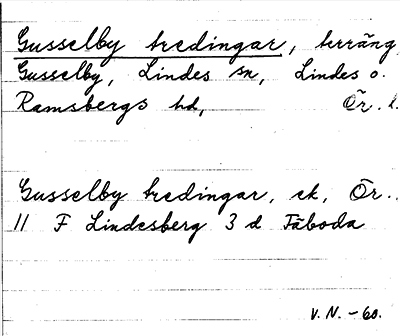 Gusselby tredingar, terräng
Gusselby, Lindes sn, Lindes o.
Ramsbergs hd, Ör. l.
Gusselby tredingar, ek, Ör..
11 F Lindesberg 3 d Fäboda
V. N. - 60.